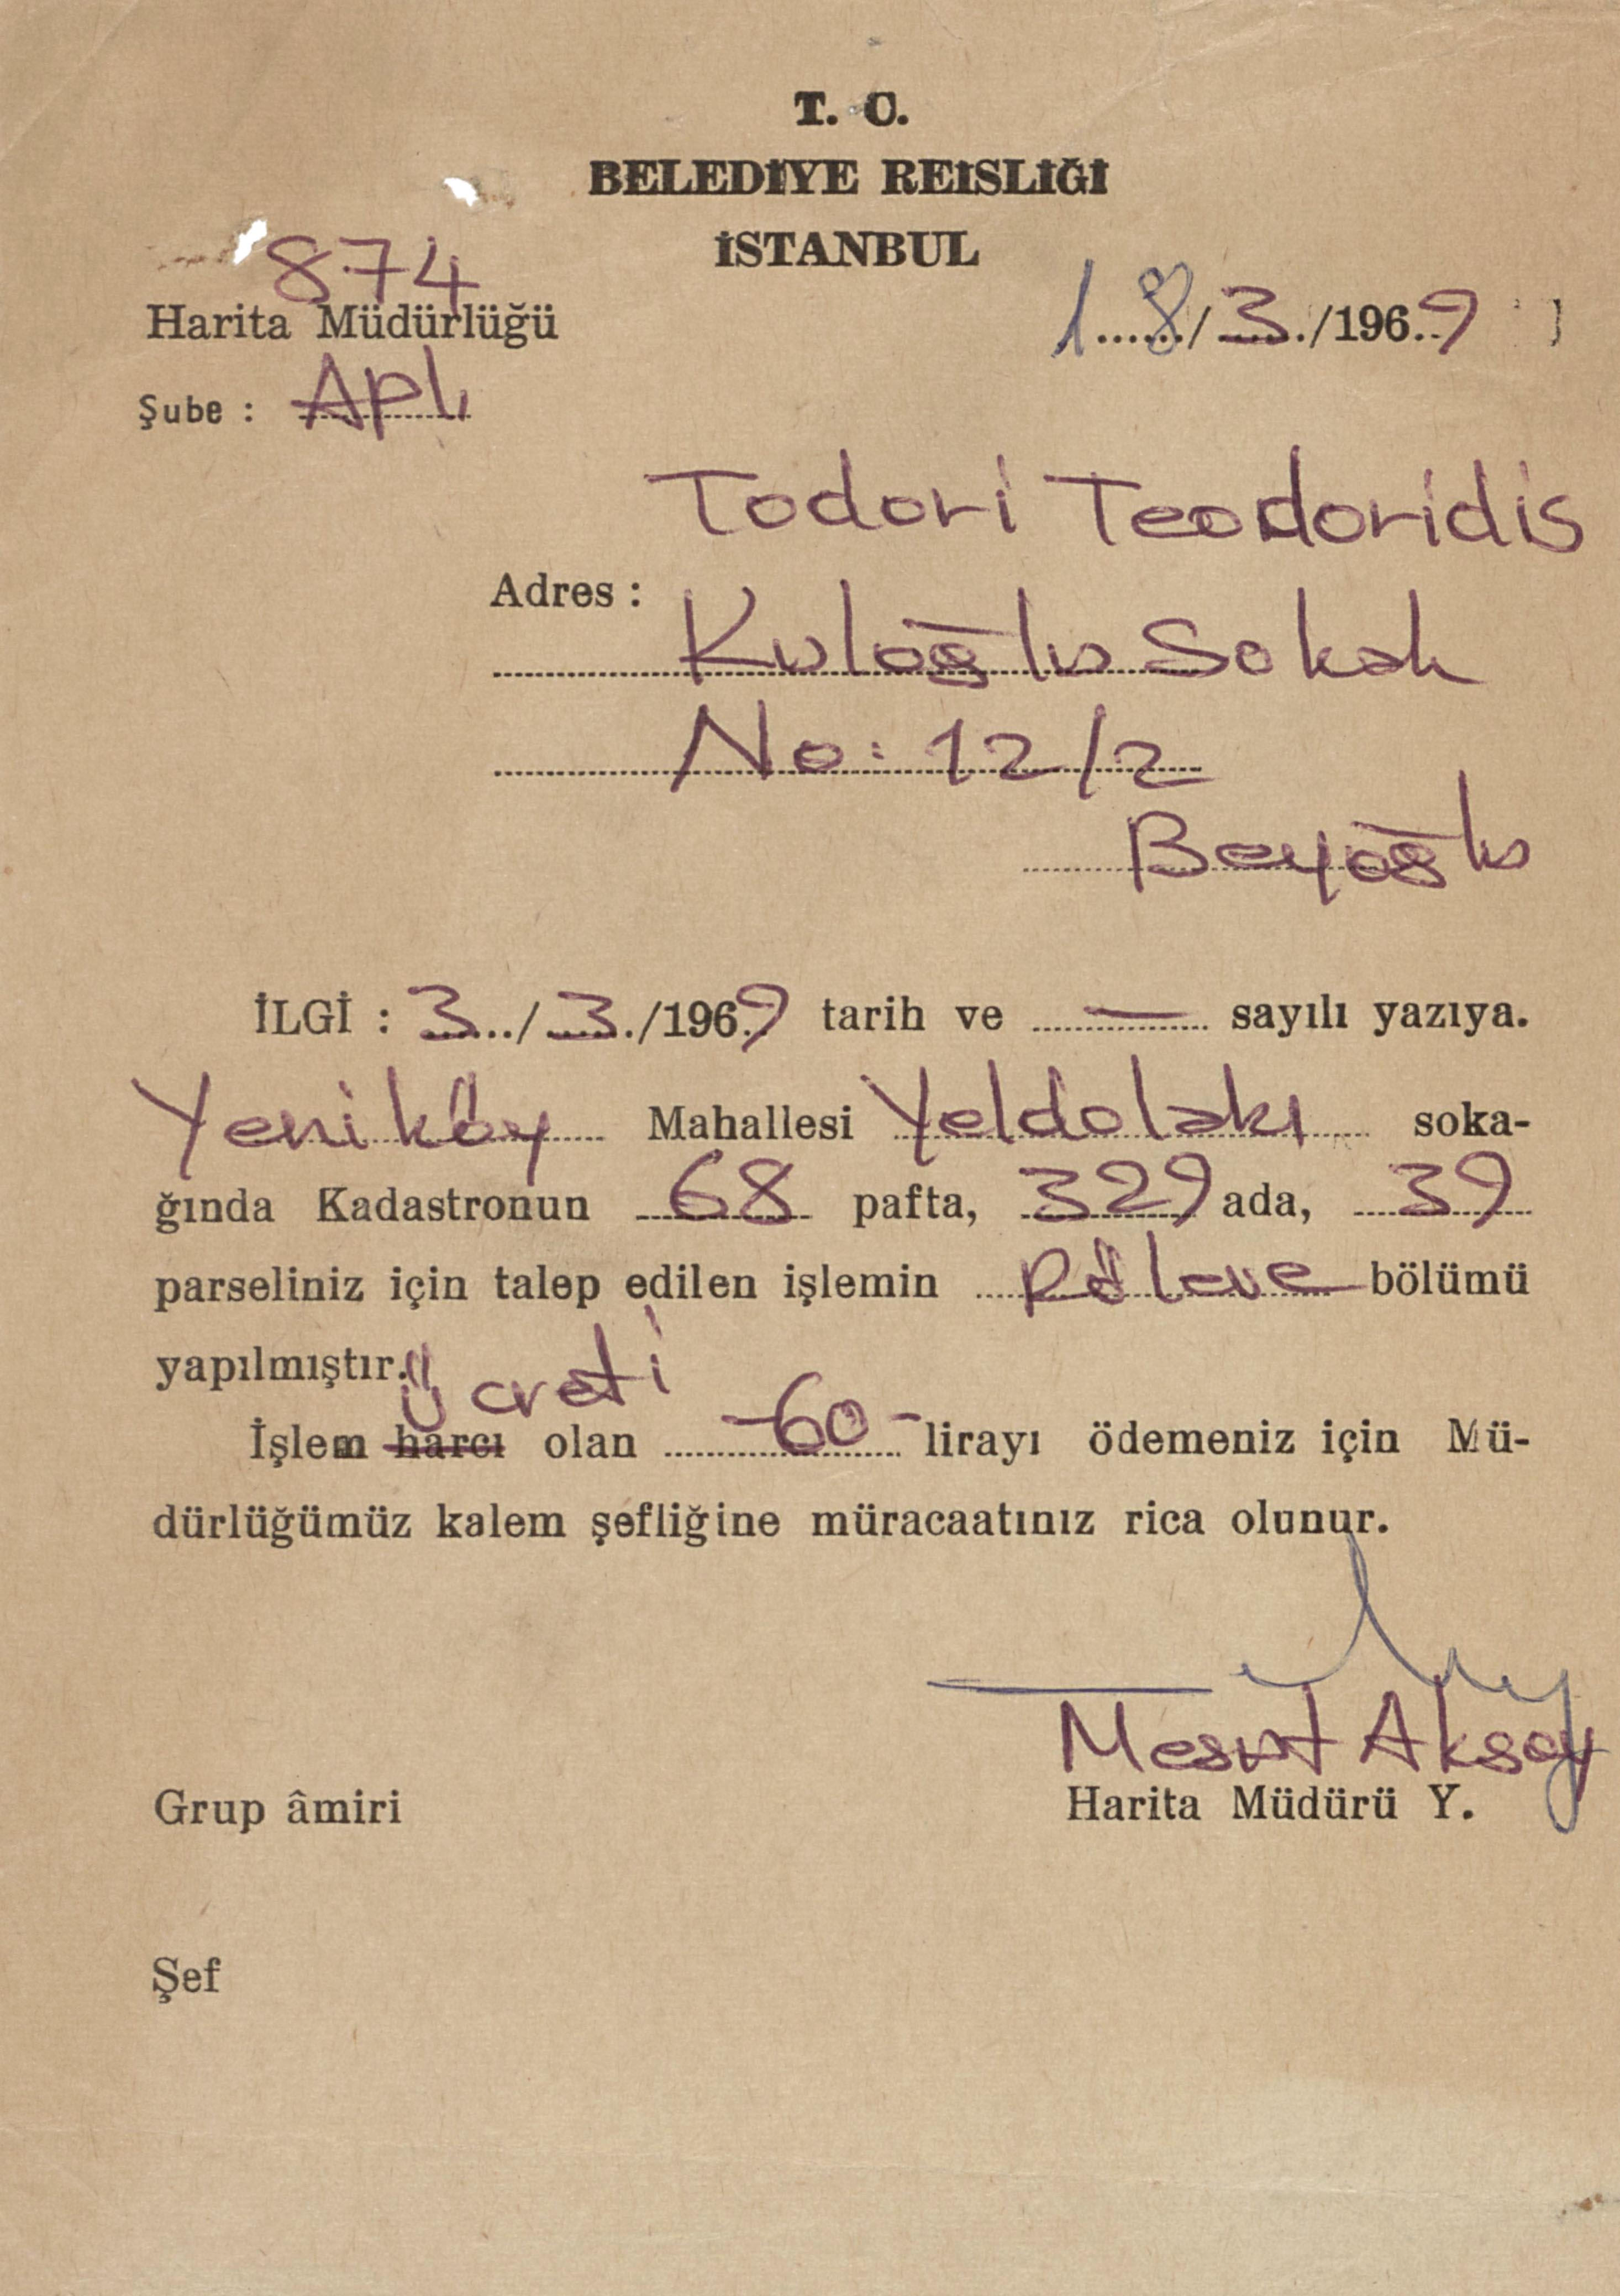 T. C.
BELEDİYE REİSLİĞİ
İSTANBUL
874
Harita Müdürlüğü
18/3/1969
Şube : Aplı
Todori Teodoridis
Adres :
Kuloğlu Sokak
No: 12/2
Beyoğlu
İLGİ : 3/3/1969 tarih ve — sayılı yazıya.
Yeniköy Mahallesi Yeldolakı soka-
ğında Kadastronun 68 pafta, 329 ada, 39
parseliniz için talep edilen işlemin Röleve bölümü
yapılmıştır.
ücreti
İşlem harcı olan -60- lirayı ödemeniz için Mü-
dürlüğümüz kalem şefliğine müracaatınız rica olunur.
Mesut Aksoy
Grup âmiri Harita Müdürü Y.
Şef